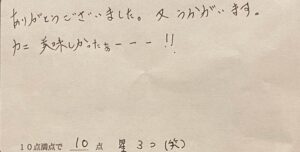 ありがとうございました。又うかがいます。
カニ美味しかったぁーーー!!
10点満点で 10 点 星3つ(笑)